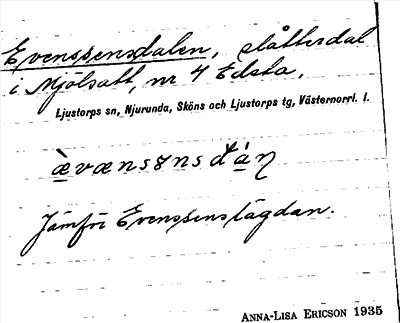 Evenssensdalen, slåtterdal
i Mjölsätt, nr 4 Edsta.
Ljustorps sn, Njurunda, Sköns och Ljustorps tg, Västernorrl. l.
Jämför Evenssenslägdan.
ANNA-LISA ERICSON 1935